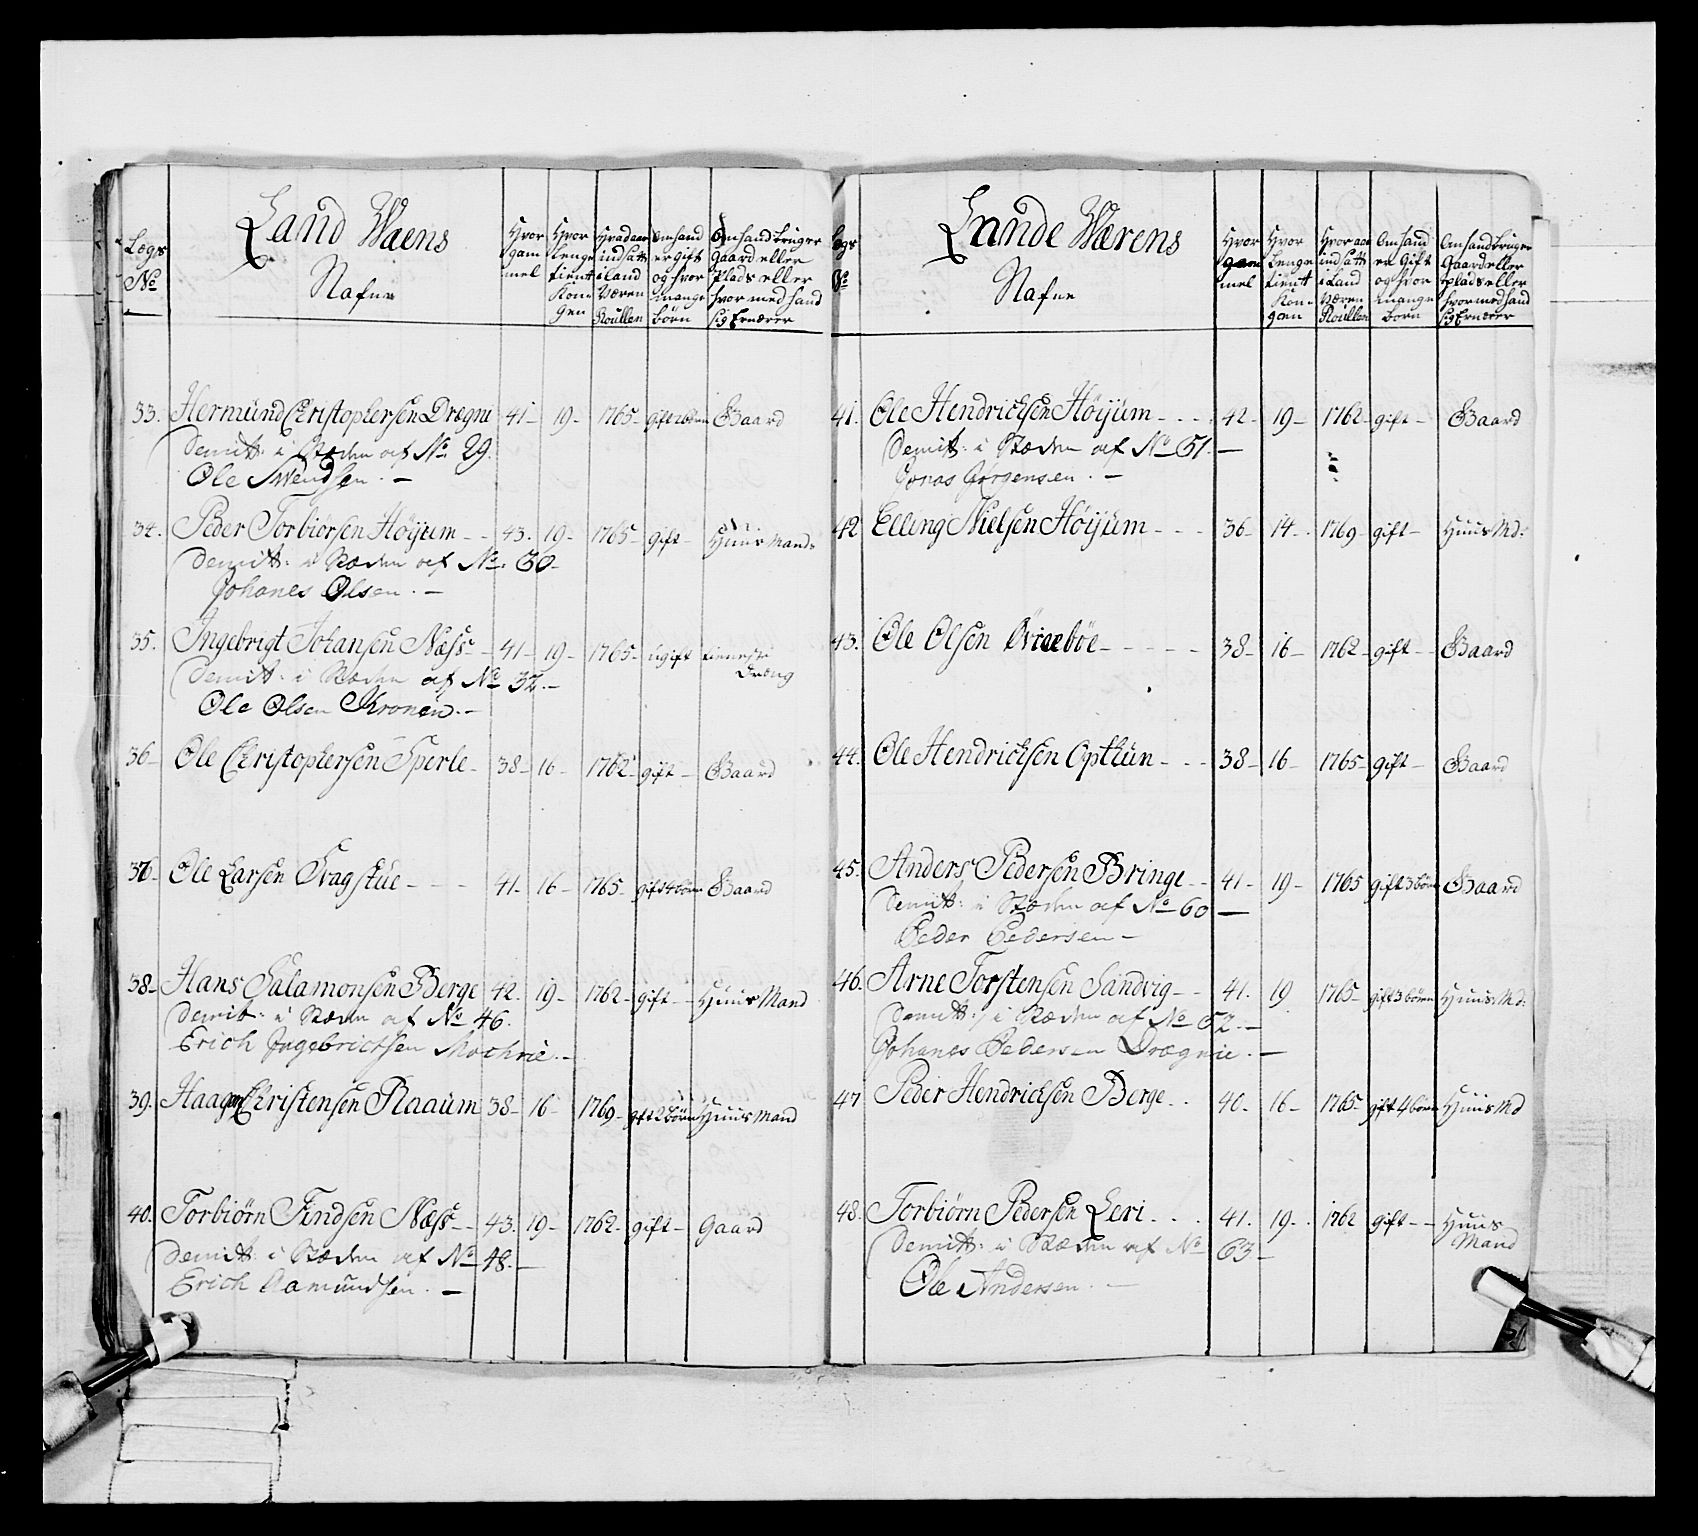 Lægs No
Land Waens Nafne
Hvor gam mel
Hvor lenge tient Kon gen
Hvad aar indsatt i Land Væren Roullen
Om hand er gift og hvor mange børn
Om hand bruger gaard eller Plads eller hvor med hand sig Ernærer
33. Hermund Christophersen Drægni 41- 19- 1765- gift Gaard
Demitt: i Stæden af No. 29.
Ole Swendsen. -
34. Peder Torbiørsen Höijum - - 43. 19- 1765- gift- Huus Mand
Demitt: i Stæden af No. 30-
Johanes Olsen. -
35. Ingebrigt Johansen Næss - 41- 19- 1765- ugift tieneste Dræng
Demitt: i Stæden af No 32. -
Ole Olsen Kronen. -
36- Ole Christophersen Sperle - 38- 16- 1762- gift- Gaard
37- Ole Larsen - - - 41- 16- 1765- gift 4 børn Gaard
38- Hans Salamonsen Berge 42. 19- 1762- gift- Huus Mand
Demitt: i Stæden af No 46.
Erich Ingebrictsen
39. Haagen Christensen Raaum 38- 16- 1769- gift 2 børn Huus Mand
40. Torbiørn Findsen Næss - 43. 19- 1762- gift- Gaard
Demitt: i Stæden af No 48. -
Erich Aamundsen. -
Lægs No
Lande Wærens Nafne
Hvor gam mel
Hvor Lenge tient Kon- gen
Hvor aar indsatt i Land Væren Roullen
Om hand er Gift og hvor mange børn
Om hand bruger Gaard eller plads eller hvor med hand sig Ernærer
41. Ole Hendrichsen Höijum - - - 42- 19- 1762- gift- Gaard
Demitt: i Stæden af No 51. -
Jonas Jorgensen. -
42 Elling Nielsen Höijum - - - 36- 14- 1769- gift- Huus Md:
43. Ole Olsen Øvrebøe - - - - - 38- 16- 1762- gift- Gaard
44. Ole Hendrichsen Opthun - - - 38- 16- 1765- gift- Gaard
45. Anders Pedersen Bringe - - 41- 19- 1765 gift 3 børn Gaard
Demitt: i Stæden af No 60 -
Peder Pedersen -
46. Arne Torstensen Sandvig - - 41. 19 1765- gift 3 børn Huus Md:
Demitt: i Stæden af No 52. -
Johanes Pedersen Drægnie. -
47 Peder Hendrichsen Berge - - 40- 16- 1765- gift 4 børn Huus Md
48. Torbiørn Pedersen Leri - - - 41. 19- 1762 gift - - Huus Mand
Demitt: i Stæden af No 63-
Ole Andersen -